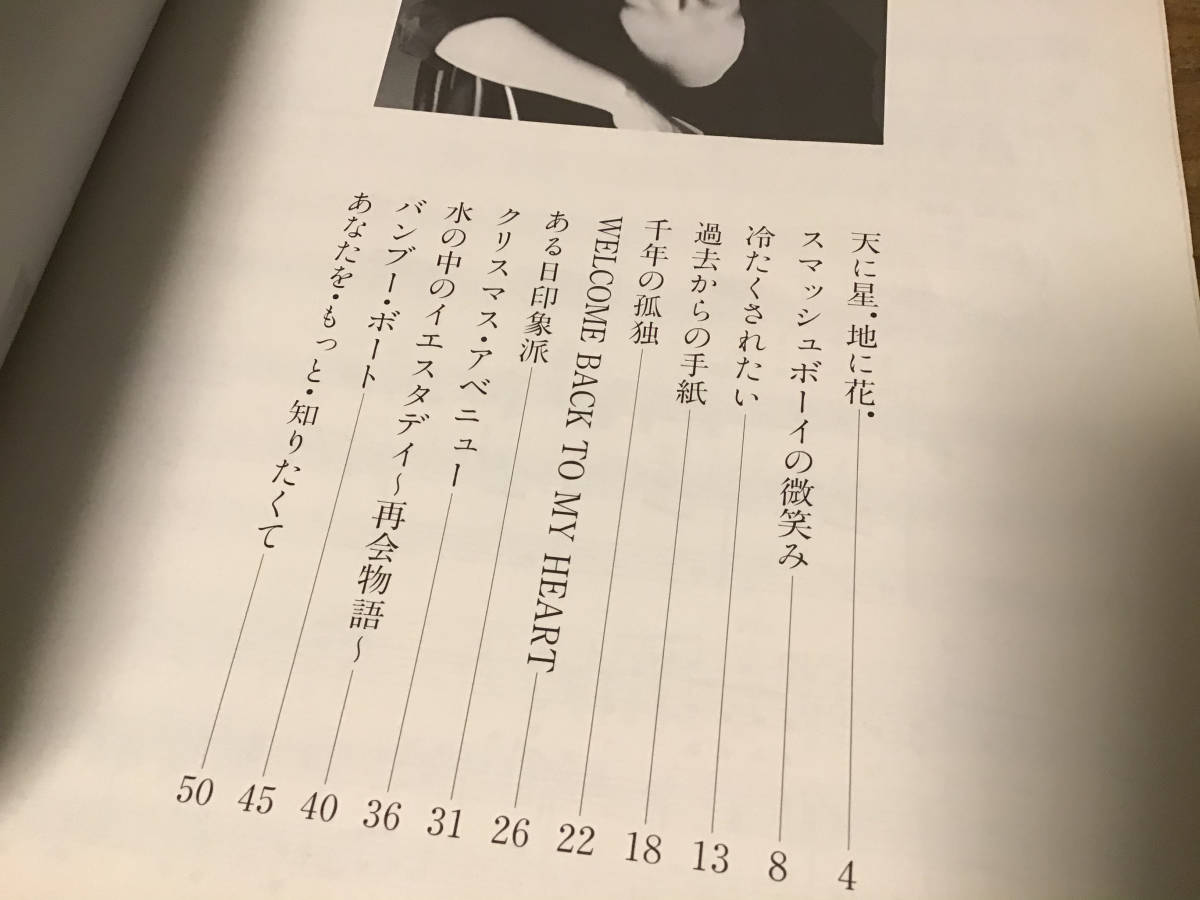 天に星・地に花・ 4
スマッシュボーイの微笑み 8
冷たくされたい 13
過去からの手紙 18
千年の孤独 22
WELCOME BACK TO MY HEART 26
ある日印象派 31
クリスマス・アベニュー 36
水の中のイエスタデイ～再会物語～ 40
バンブー・ボート 45
あなたを・もっと・知りたくて 50